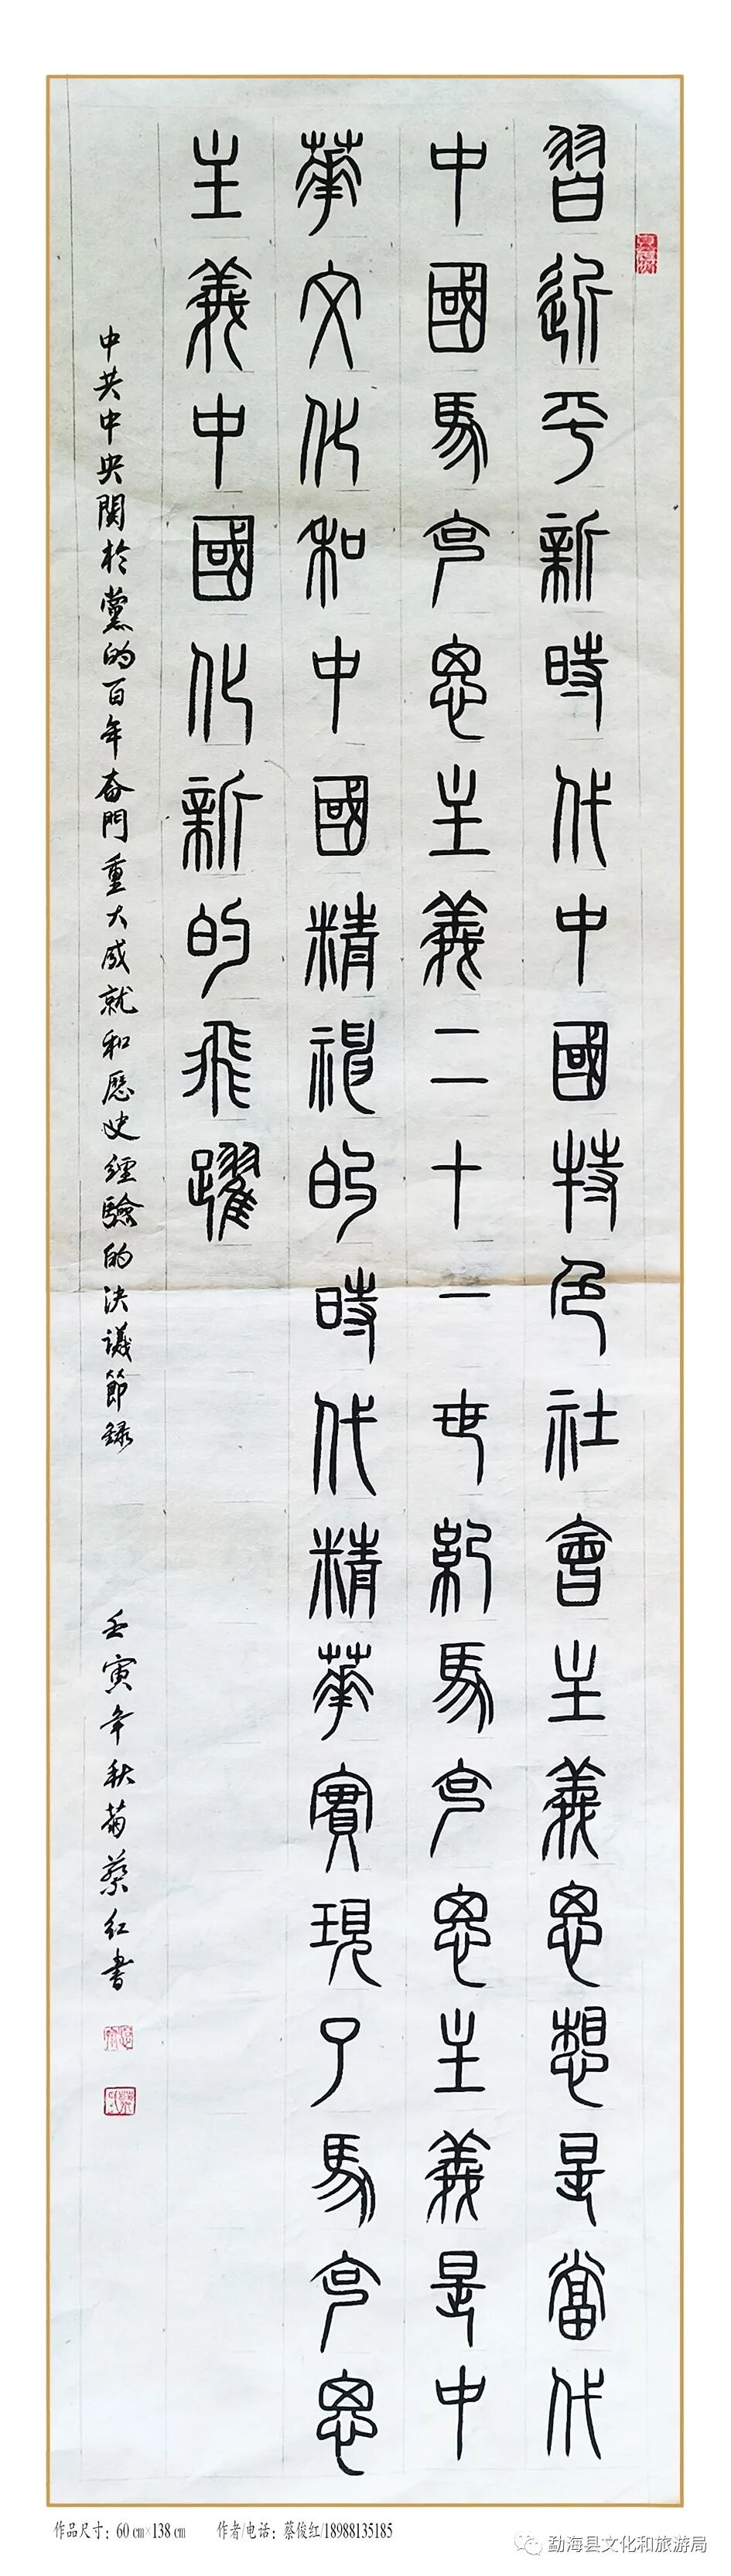 習近平新時代中國特色社會主義思想是當代
中國馬克思主義二十一世紀馬克思主義是中
華文化和中國精神的時代精華實現了馬克思
主義中國化新的飛躍
中共中央關於黨的百年奮鬥重大成就和歷史經驗的決議節錄
壬寅年秋菊蔡红書
作品尺寸：60 cm×138 cm 作者/电话：蔡俊红/18988135185
勐海县文化和旅游局